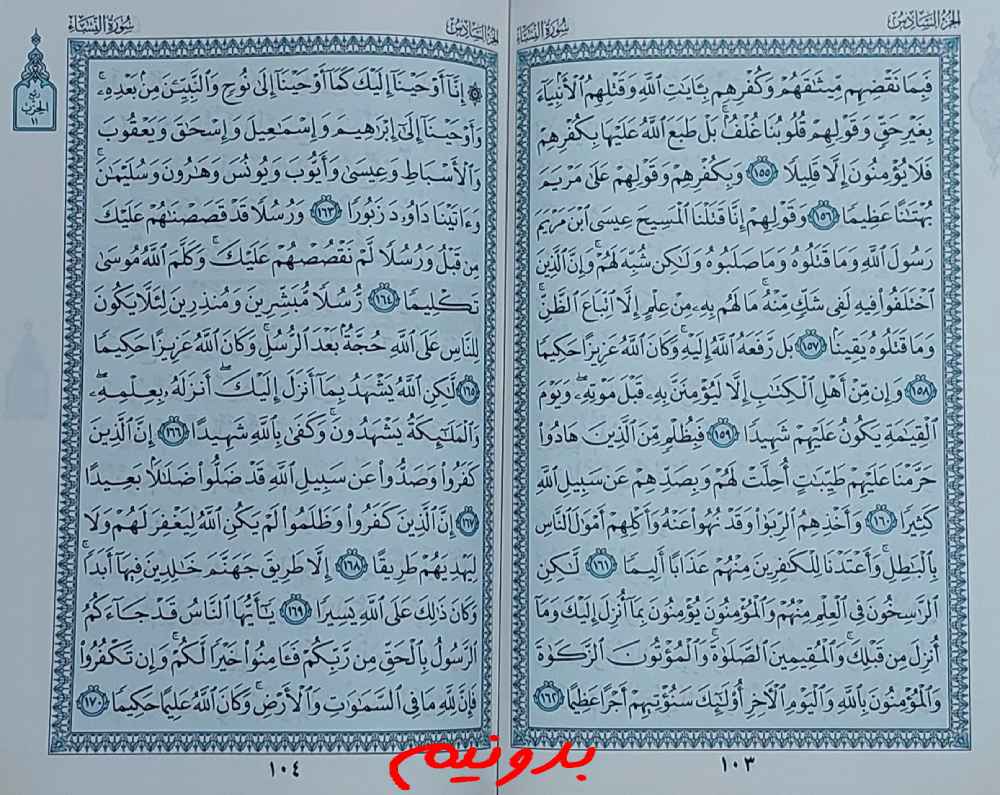 الجزء السادس
سورة النساء
فَبِمَا نَقْضِهِم مِّيثَٰقَهُمْ وَكُفْرِهِم بِـَٔايَٰتِ ٱللَّهِ وَقَتْلِهِمُ ٱلْأَنۢبِيَآءَ
بِغَيْرِ حَقٍّ وَقَوْلِهِمْ قُلُوبُنَا غُلْفٌۢ ۚ بَلْ طَبَعَ ٱللَّهُ عَلَيْهَا بِكُفْرِهِمْ
فَلَا يُؤْمِنُونَ إِلَّا قَلِيلًا ١٥٥ وَبِكُفْرِهِمْ وَقَوْلِهِمْ عَلَىٰ مَرْيَمَ
بُهْتَٰنًا عَظِيمًا ١٥٦ وَقَوْلِهِمْ إِنَّا قَتَلْنَا ٱلْمَسِيحَ عِيسَى ٱبْنَ مَرْيَمَ
رَسُولَ ٱللَّهِ وَمَا قَتَلُوهُ وَمَا صَلَبُوهُ وَلَٰكِن شُبِّهَ لَهُمْ ۚ وَإِنَّ ٱلَّذِينَ
ٱخْتَلَفُوا۟ فِيهِ لَفِى شَكٍّ مِّنْهُ ۚ مَا لَهُم بِهِۦ مِنْ عِلْمٍ إِلَّا ٱتِّبَاعَ ٱلظَّنِّ ۚ
وَمَا قَتَلُوهُ يَقِينًۢا ١٥٧ بَل رَّفَعَهُ ٱللَّهُ إِلَيْهِ ۚ وَكَانَ ٱللَّهُ عَزِيزًا حَكِيمًا
١٥٨ وَإِن مِّنْ أَهْلِ ٱلْكِتَٰبِ إِلَّا لَيُؤْمِنَنَّ بِهِۦ قَبْلَ مَوْتِهِۦ ۖ وَيَوْمَ
ٱلْقِيَٰمَةِ يَكُونُ عَلَيْهِمْ شَهِيدًا ١٥٩ فَبِظُلْمٍ مِّنَ ٱلَّذِينَ هَادُوا۟
حَرَّمْنَا عَلَيْهِمْ طَيِّبَٰتٍ أُحِلَّتْ لَهُمْ وَبِصَدِّهِمْ عَن سَبِيلِ ٱللَّهِ
كَثِيرًا ١٦٠ وَأَخْذِهِمُ ٱلرِّبَوٰا۟ وَقَدْ نُهُوا۟ عَنْهُ وَأَكْلِهِمْ أَمْوَٰلَ ٱلنَّاسِ
بِٱلْبَٰطِلِ ۚ وَأَعْتَدْنَا لِلْكَٰفِرِينَ مِنْهُمْ عَذَابًا أَلِيمًا ١٦١ لَّٰكِنِ
ٱلرَّٰسِخُونَ فِى ٱلْعِلْمِ مِنْهُمْ وَٱلْمُؤْمِنُونَ يُؤْمِنُونَ بِمَآ أُنزِلَ إِلَيْكَ وَمَآ
أُنزِلَ مِن قَبْلِكَ ۚ وَٱلْمُقِيمِينَ ٱلصَّلَوٰةَ ۚ وَٱلْمُؤْتُونَ ٱلزَّكَوٰةَ
وَٱلْمُؤْمِنُونَ بِٱللَّهِ وَٱلْيَوْمِ ٱلْءَاخِرِ أُو۟لَٰٓئِكَ سَنُؤْتِيهِمْ أَجْرًا عَظِيمًا ١٦٢
١٠٣
الجزء السادس
سورة النساء
ربع
الحزب
١١
۞ إِنَّآ أَوْحَيْنَآ إِلَيْكَ كَمَآ أَوْحَيْنَآ إِلَىٰ نُوحٍ وَٱلنَّبِيِّـۧنَ مِنۢ بَعْدِهِۦ ۚ
وَأَوْحَيْنَآ إِلَىٰٓ إِبْرَٰهِيمَ وَإِسْمَٰعِيلَ وَإِسْحَٰقَ وَيَعْقُوبَ
وَٱلْأَسْبَاطِ وَعِيسَىٰ وَأَيُّوبَ وَيُونُسَ وَهَٰرُونَ وَسُلَيْمَٰنَ ۚ
وَءَاتَيْنَا دَاوُۥدَ زَبُورًا ١٦٣ وَرُسُلًا قَدْ قَصَصْنَٰهُمْ عَلَيْكَ
مِن قَبْلُ وَرُسُلًا لَّمْ نَقْصُصْهُمْ عَلَيْكَ ۚ وَكَلَّمَ ٱللَّهُ مُوسَىٰ
تَكْلِيمًا ١٦٤ رُّسُلًا مُّبَشِّرِينَ وَمُنذِرِينَ لِئَلَّا يَكُونَ
لِلنَّاسِ عَلَى ٱللَّهِ حُجَّةٌۢ بَعْدَ ٱلرُّسُلِ ۚ وَكَانَ ٱللَّهُ عَزِيزًا حَكِيمًا
١٦٥ لَّٰكِنِ ٱللَّهُ يَشْهَدُ بِمَآ أَنزَلَ إِلَيْكَ ۖ أَنزَلَهُۥ بِعِلْمِهِۦ ۖ
وَٱلْمَلَٰٓئِكَةُ يَشْهَدُونَ ۚ وَكَفَىٰ بِٱللَّهِ شَهِيدًا ١٦٦ إِنَّ ٱلَّذِينَ
كَفَرُوا۟ وَصَدُّوا۟ عَن سَبِيلِ ٱللَّهِ قَدْ ضَلُّوا۟ ضَلَٰلًۢا بَعِيدًا
١٦٧ إِنَّ ٱلَّذِينَ كَفَرُوا۟ وَظَلَمُوا۟ لَمْ يَكُنِ ٱللَّهُ لِيَغْفِرَ لَهُمْ وَلَا
لِيَهْدِيَهُمْ طَرِيقًا ١٦٨ إِلَّا طَرِيقَ جَهَنَّمَ خَٰلِدِينَ فِيهَآ أَبَدًا ۚ
وَكَانَ ذَٰلِكَ عَلَى ٱللَّهِ يَسِيرًا ١٦٩ يَٰٓأَيُّهَا ٱلنَّاسُ قَدْ جَآءَكُمُ
ٱلرَّسُولُ بِٱلْحَقِّ مِن رَّبِّكُمْ فَـَٔامِنُوا۟ خَيْرًا لَّكُمْ ۚ وَإِن تَكْفُرُوا۟
فَإِنَّ لِلَّهِ مَا فِى ٱلسَّمَٰوَٰتِ وَٱلْأَرْضِ ۚ وَكَانَ ٱللَّهُ عَلِيمًا حَكِيمًا ١٧٠
١٠٤
بدونیم